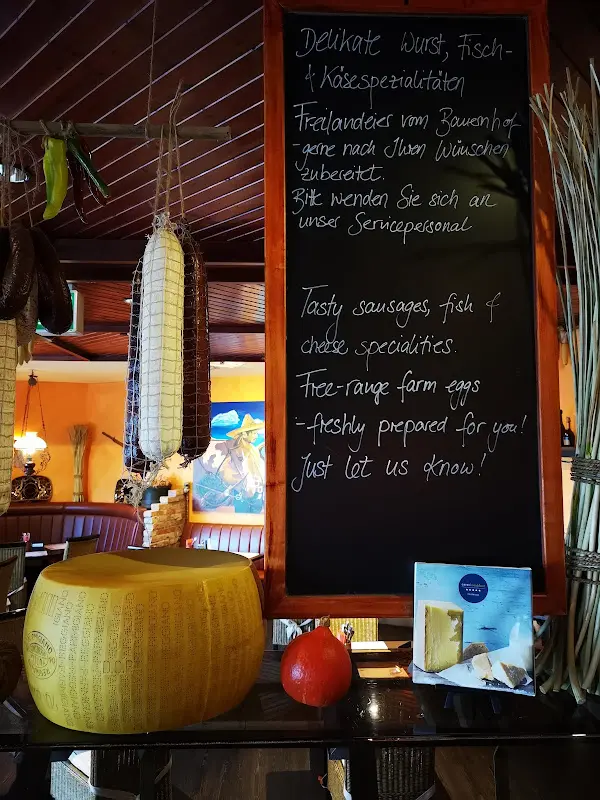 Delikate Wurst, Fisch-
& Käsespezialitäten
Freilandeier vom Bauernhof
-gerne nach Ihren Wünschen
zubereitet.
Bitte wenden Sie sich an
unser Servicepersonal
Tasty sausages, fish &
cheese specialities.
Free-range farm eggs
-freshly prepared for you!
Just let us know!
PARMIGIANO
REGGIANO